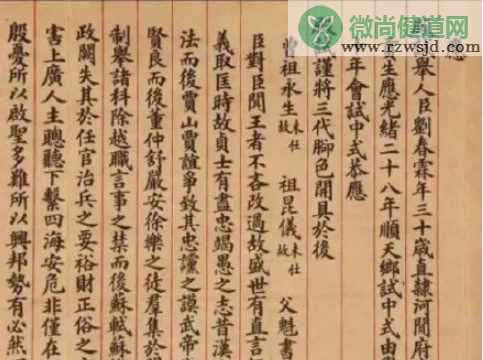 微尚健道网
www.rzwsjd.com
應
舉人臣劉春霖年三十歲直隸河間府
生應光緒二十八年順天鄉試中式由
年會試中式恭應
試謹將三代腳色開具於後
曾祖永生未仕故 祖昆儀未仕故 父魁書
臣對臣聞王者不吝改過故盛世有直言
義取匡時故貞士有盡忠竭愚之志昔漢
法而後賈山賈誼爭致其忠讜之謨武帝
賢良而後董仲舒嚴安徐樂之徒羣集於
制舉諸科除越職言事之禁而後蘇軾蘇
政闕失其於任官治兵之要裕財正俗之
害上廣人主聰聽下繫四海安危非僅在
殷憂所以啟聖多難所以興邦勢有必然